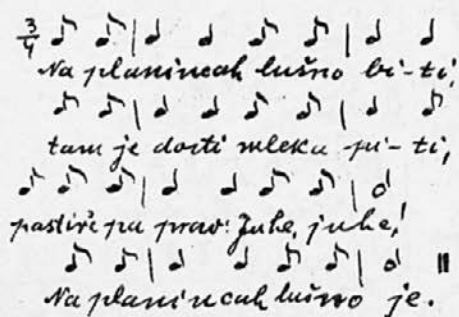 3/4
Na planincah lušno bi-ti,
tam je dosti mleka pi-ti,
pastirče pa prav: Juhe, juhe,!
Na planincah lušno je.